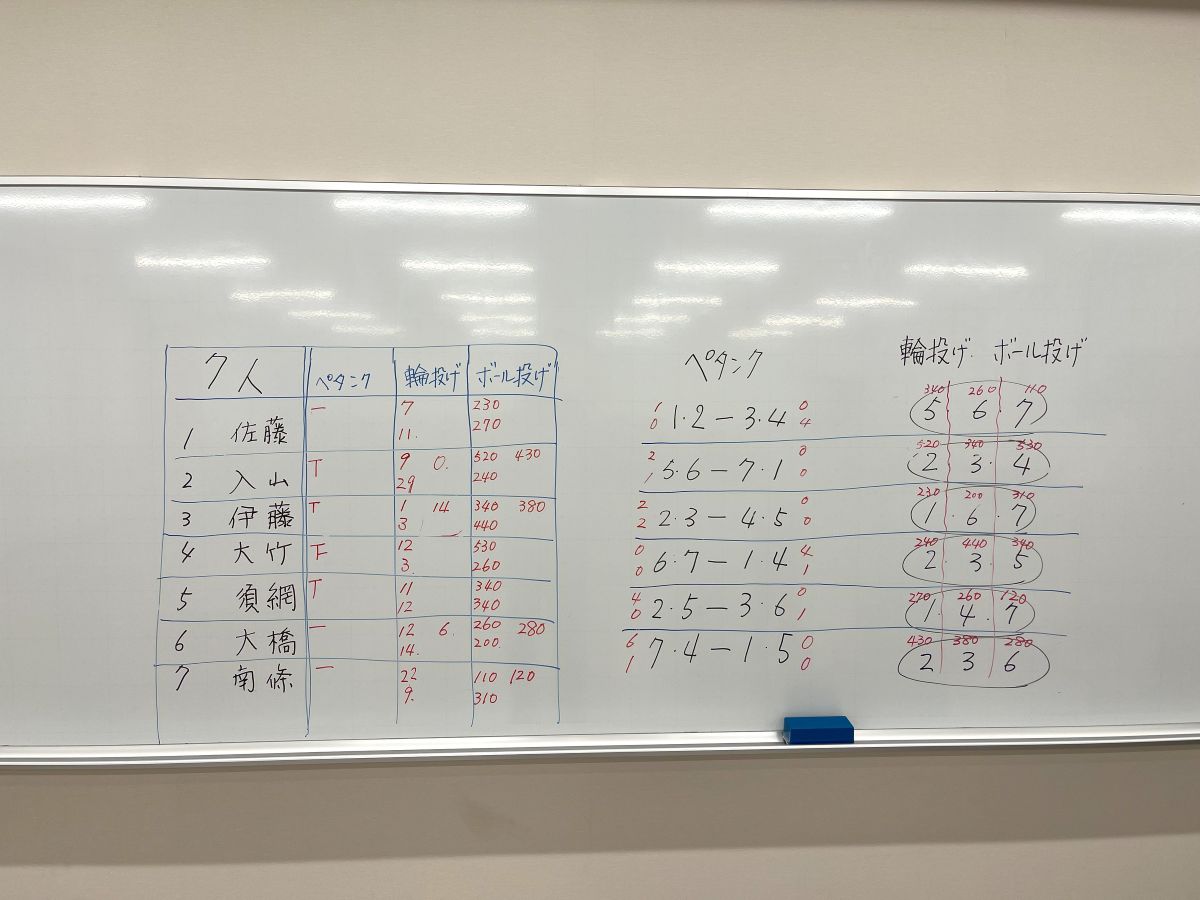 7人 ペタンク 輪投げ ボール投げ
1 佐藤 一 7 230
11. 270
2 入山 T 9 0. 520 430
29 240
3 伊藤 T 1 14 340 380
3 440
4 大竹 下 12 530
3. 260
5 須網 T 11 340
12 340
6 大橋 一 12 6. 260 280
14. 200
7 南條 一 22 110 120
9. 310
ペタンク
1 0
0 1・2 − 3・4 4
2 0
1 5・6 − 7・1 0
2 0
2 2・3 − 4・5 0
0 4
0 6・7 − 1・4 1
4 0
0 2・5 − 3・6 1
6 0
1 7・4 − 1・5 0
輪投げ ボール投げ
340 260 110
5 6 7
520 340 530
2 3・4
230 200 310
1・6・7
240 440 340
2 3 5
270 260 120
1・4・7
430 380 280
2 3 6